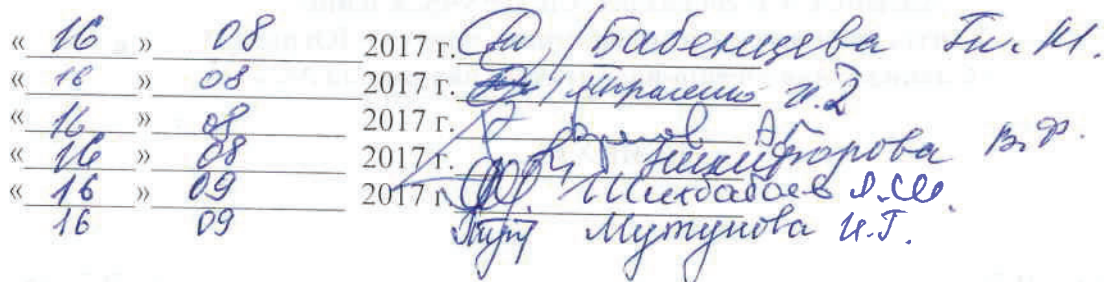 « 16 » 08 2017 г. / Бабенцева Ти. М.
« 16 » 08 2017 г. / И. Д
« 16 » 08 2017 г.
« 16 » 08 2017 г. Никифорова В.Ф.
« 16 » 09 2017 г. Шихбабаев А.Ш.
16 09 Мутунова И.Г.